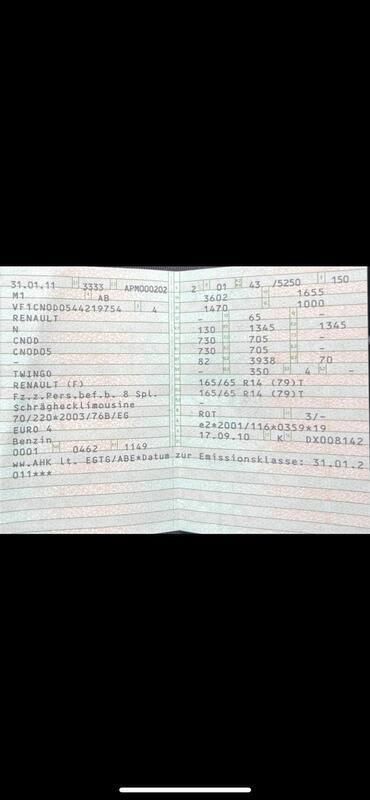 31.01.11 3333 APM000202 4
M1 AB
VF1CN0D0544219754
RENAULT
N
CN0D
CN0D05
-
TWINGO
RENAULT (F)
Fz.z.Pers.bef.b. 8 Spl.
Schräghecklimousine
70/220*2003/76B/EG
EURO 4
Benzin
0001 0462 1149
2 01 43 /5250 150
3602 1655
1470 1000
- 65 -
130 1345 1345
730 705 -
730 705 -
82 3938 70
- 350 4 -
165/65 R14 (79)T
165/65 R14 (79)T
-
ROT 3/-
e2*2001/116*0359*19
17.09.10 K DX008142
ww.AHK lt. EGTG/ABE*Datum zur Emissionsklasse: 31.01.2
011***